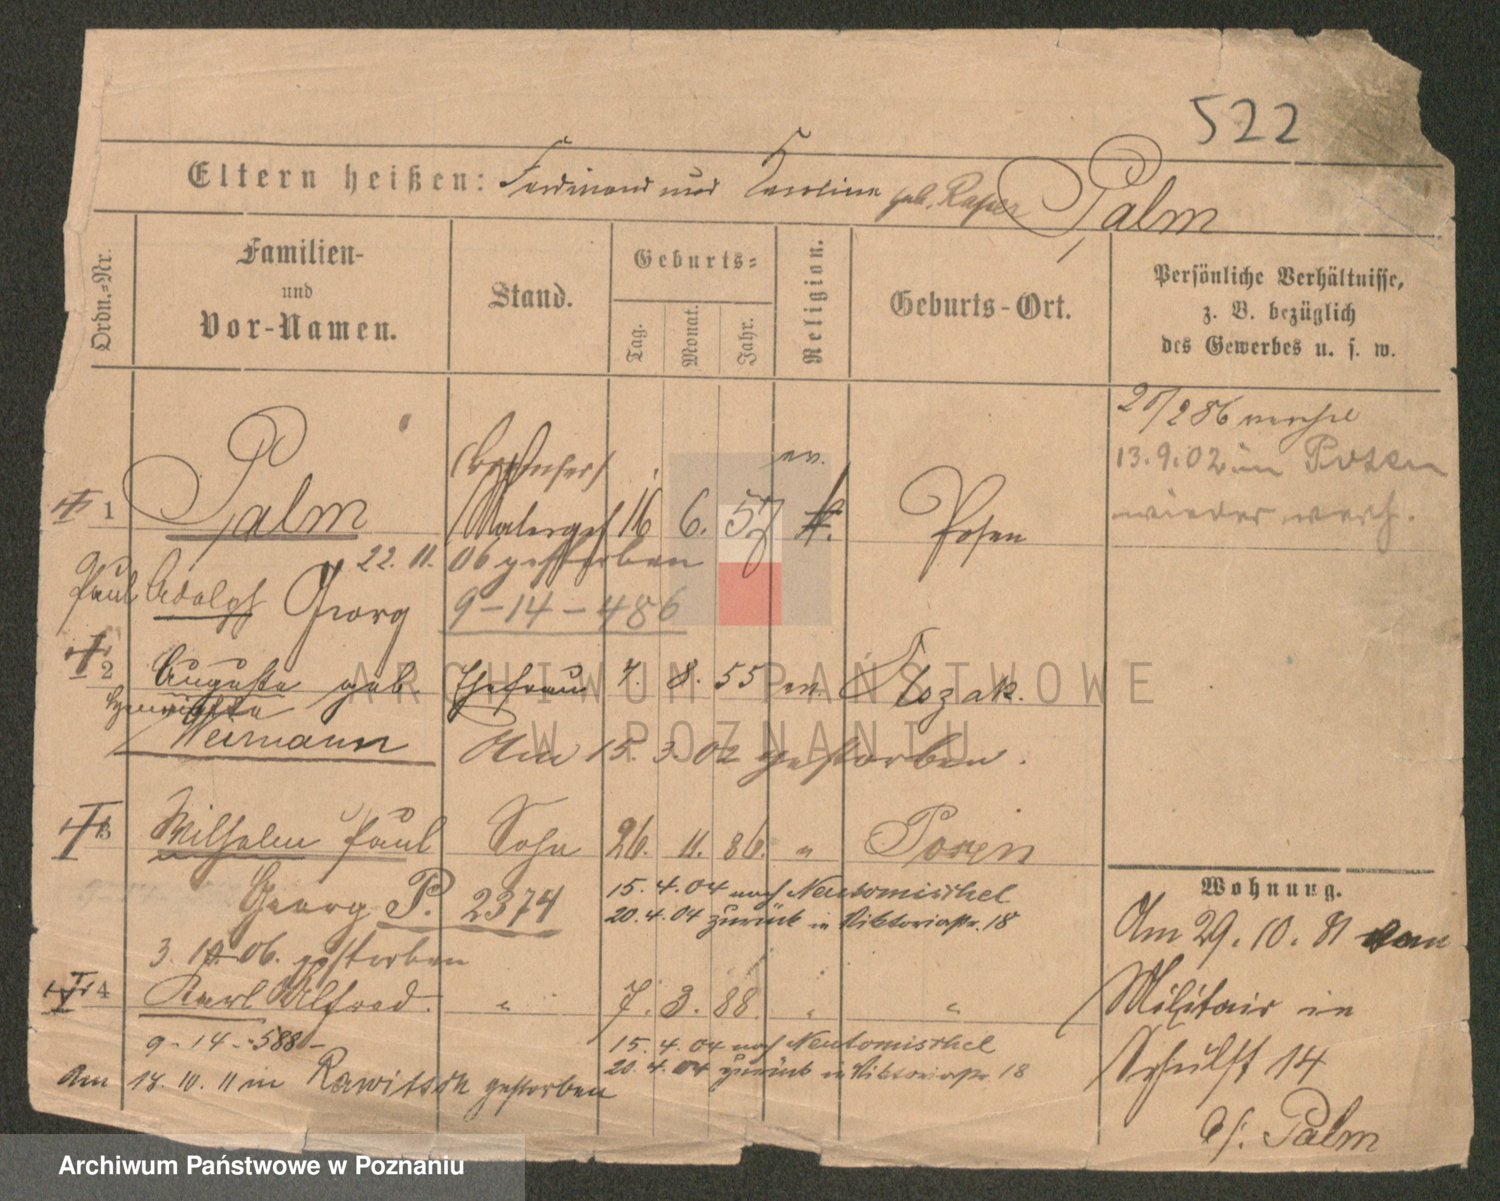 522
Eltern heißen: Ferdinand und Karoline geb. Raper Palm
Ordn.-Nr.
Familien- und Vor-Namen.
Stand.
Geburts-
Tag.
Monat.
Jahr.
Religion.
Geburts-Ort.
Persönliche Verhältnisse,
z. B. bezüglich
des Gewerbes u. s. w.
13.9.02 in Posen
wieder verh.
ev.
1 Palm Malergeh 16 6. 57 k. Posen
22. 11. 06 gestorben
Paul Adolph Georg
9-14-486
2 Auguste geb Ehefrau 7. 8. 55 ev.
Henriette
Neumann
Am 15. 3. 02 gestorben.
3 Wilhelm Paul Sohn 26. 11. 86. " Posen
Georg P. 2374
15. 4. 04 nach Neutomischel
20. 4. 04 zurück in Viktoriastr. 18
3. 12 06. gestorben
4 Karl Alfred. " 7. 3. 88. " "
9-14-588-
15. 4. 04 nach Neutomischel
20. 4. 04 zurück in Viktoriastr. 18
Am 18. 10. 11 in Rawitsch gestorben
Wohnung.
Am 29. 10. 81 vom
Militair in
Schulstr 14
b/. Palm
ARCHIWUM PAŃSTWOWE
W POZNANIU
Archiwum Państwowe w Poznaniu